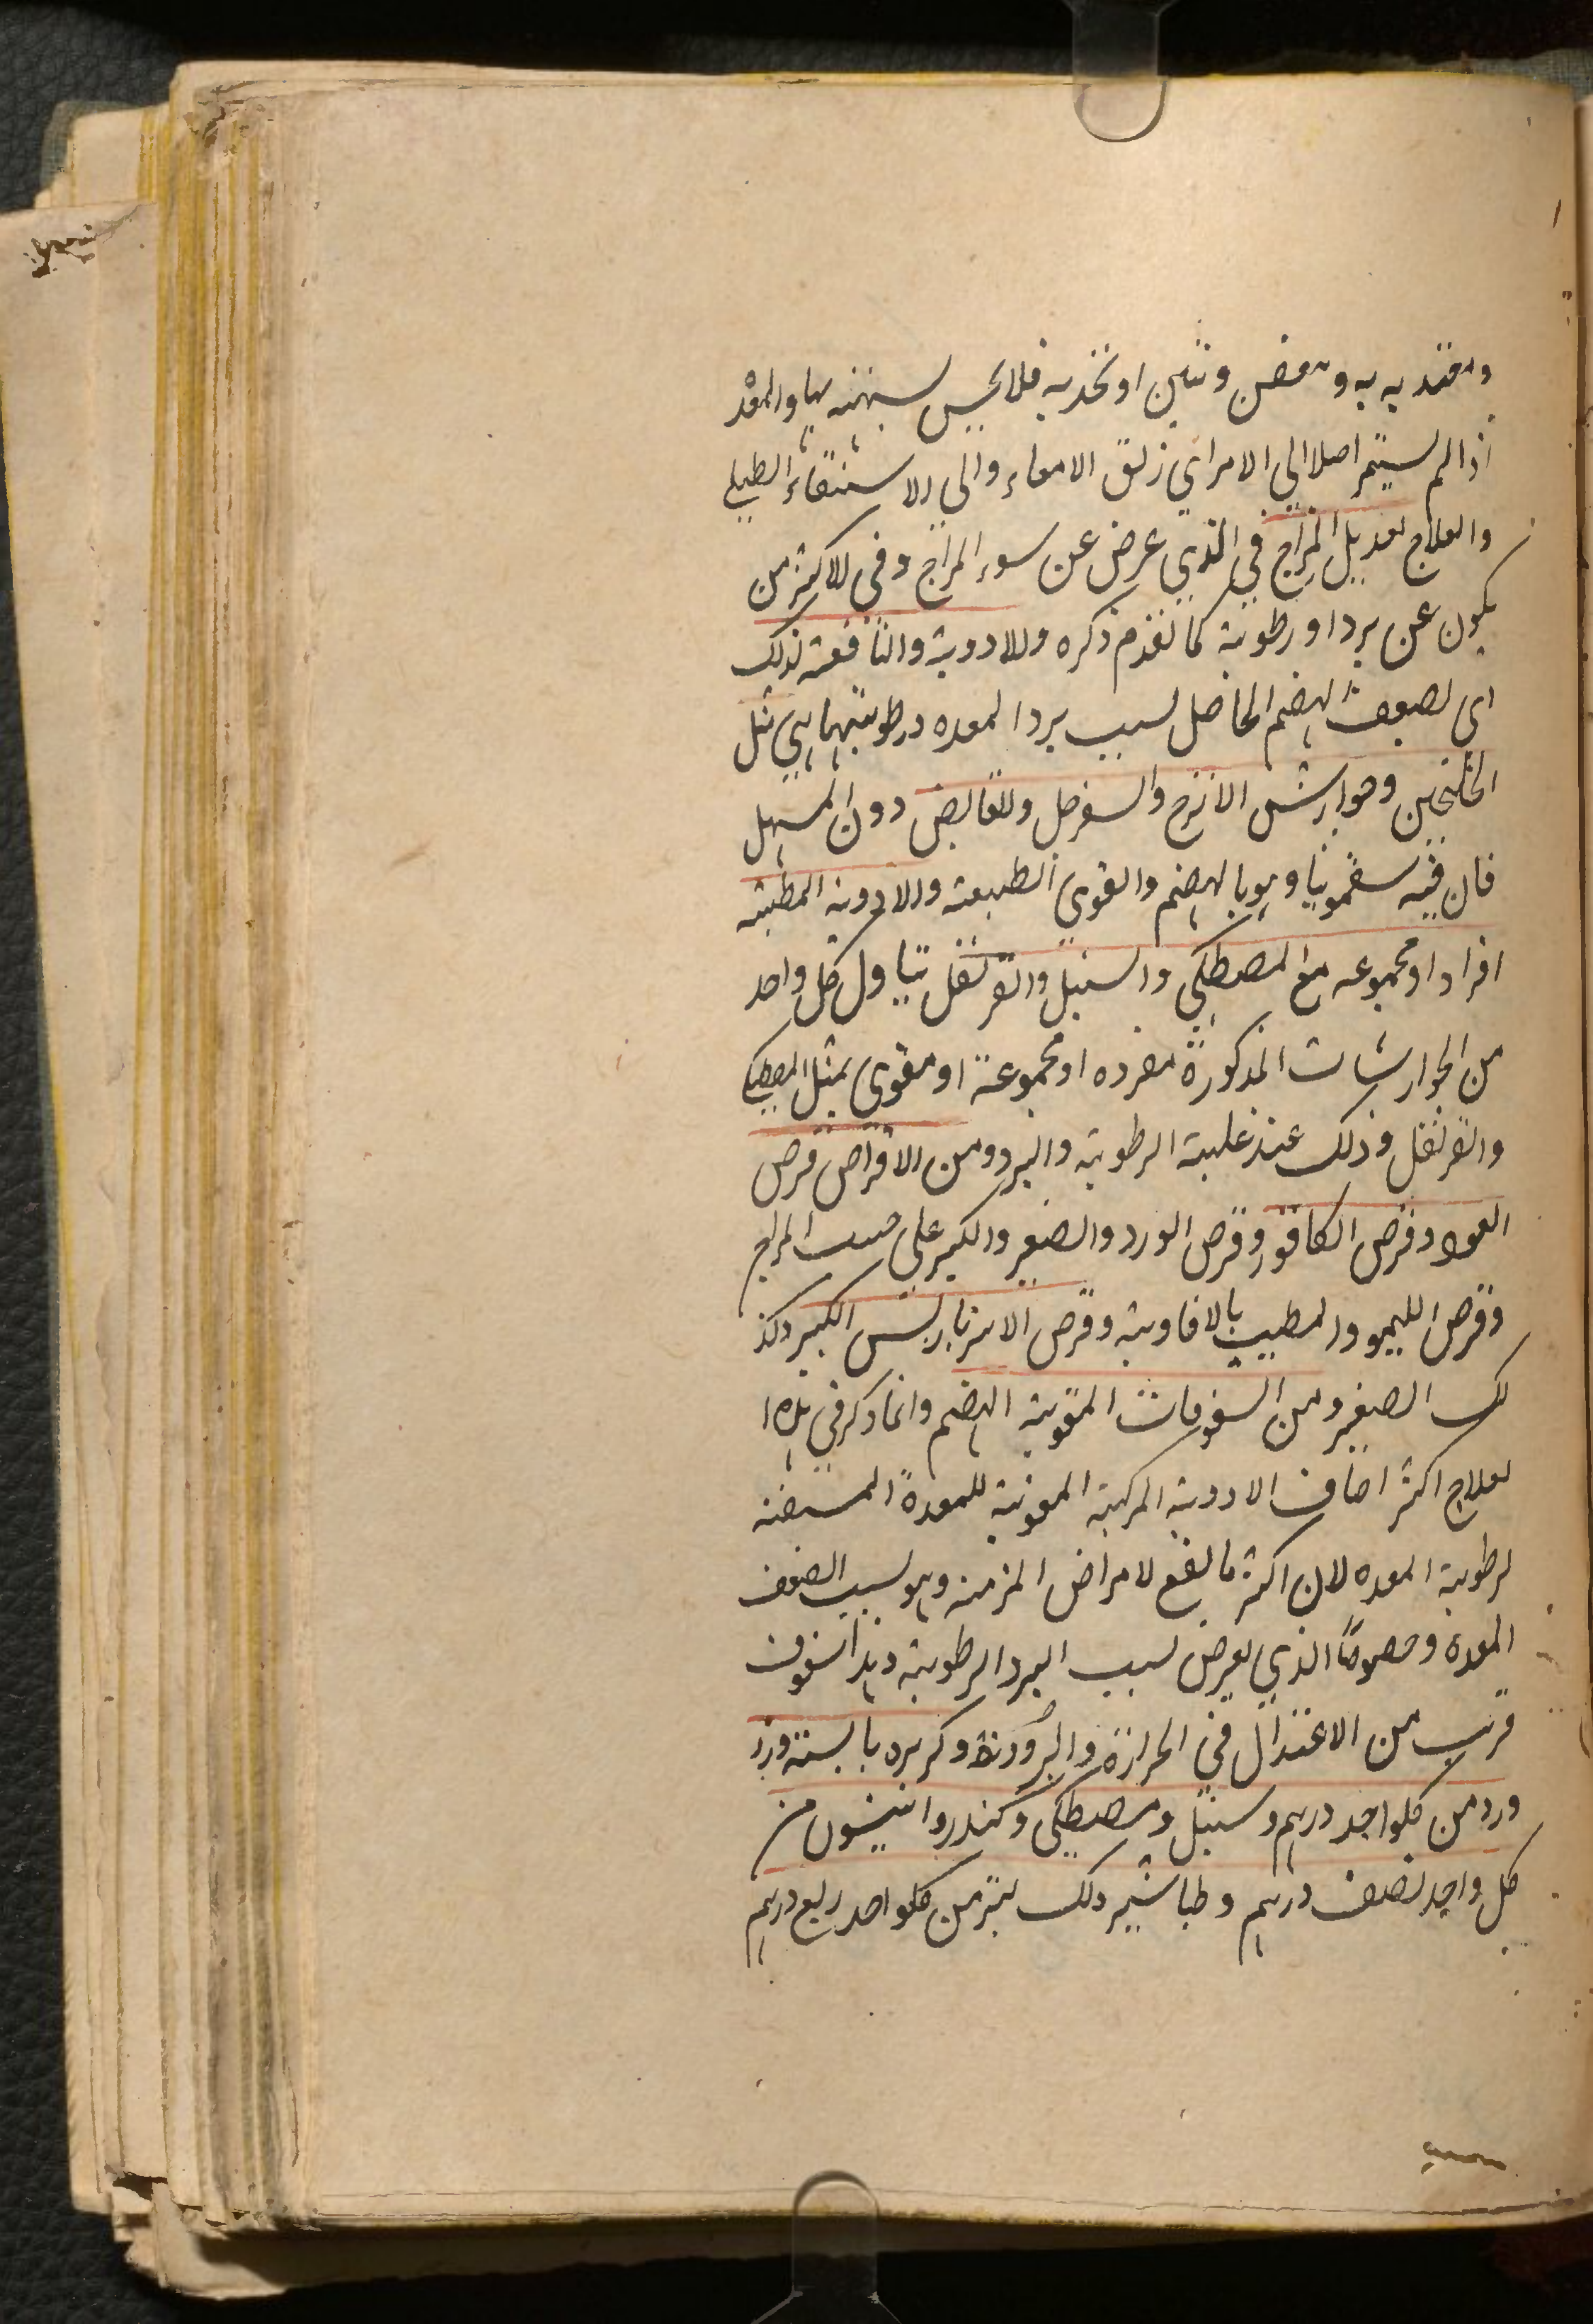 ومعتد به به وتعفن ونتن او تخذ به فلا يحس لسهنه بها والمعد
اذا لم يستمر اصلا الي الامراي زلق الامعاء والي الاستسقاء الطبلي
والعلاج تعديل المزاج في الذي عرض عن سوء المزاج وفي الاكثر من
يكون عن برد او رطوبة كما تقدم ذكره والادوية والنافعة لذلك
اي لضعف الهضم الحاصل لسبب برد المعده ورطوبتها هي مثل
الخلنجين وجوارش الاترج والسفرجل والقابض دون المسهل
فان فيه سقمونيا وهو بالهضم والقوي الطبيعة والادوية المطيبة
افرادا ومجموعه مع المصطكي والسنبل والقرنفل تناول كل واحد
من الجوارشات المذكورة مفرده او مجموعة او مقوي بمثل المصطكي
والقرنفل وذلك عند غلبة الرطوبة والبرد ومن الاقراص قرص
العود وقرص الكافور وقرص الورد والصغير والكبير علي حسب المزاج
وقرص الليمو والمطيب بالافاوية وقرص الانبرباريس الكبير وكذ
لك الصغير ومن السفوفات المقوية الهضم وانما ذكر في هذا
لعلاج اكثر اصناف الادوية المركبة المقوية للمعدة المسخنة
لرطوبة المعده لان اكثر ما ينفع لامراض المزمنه وهو لسبب الضعف
المعدة وخصوصًا الذي يعرض لسبب البرد الرطوبة وهذا سفوف
قريب من الاعتدال في الحرارة والبرودة وكزبره يابسة وزر
ورد من كلواحد درهم وسنبل ومصطكي وكندر وانيسون من
كل واحد نصف درهم وطباشير ولك بتر من كلواحد ربع درهم